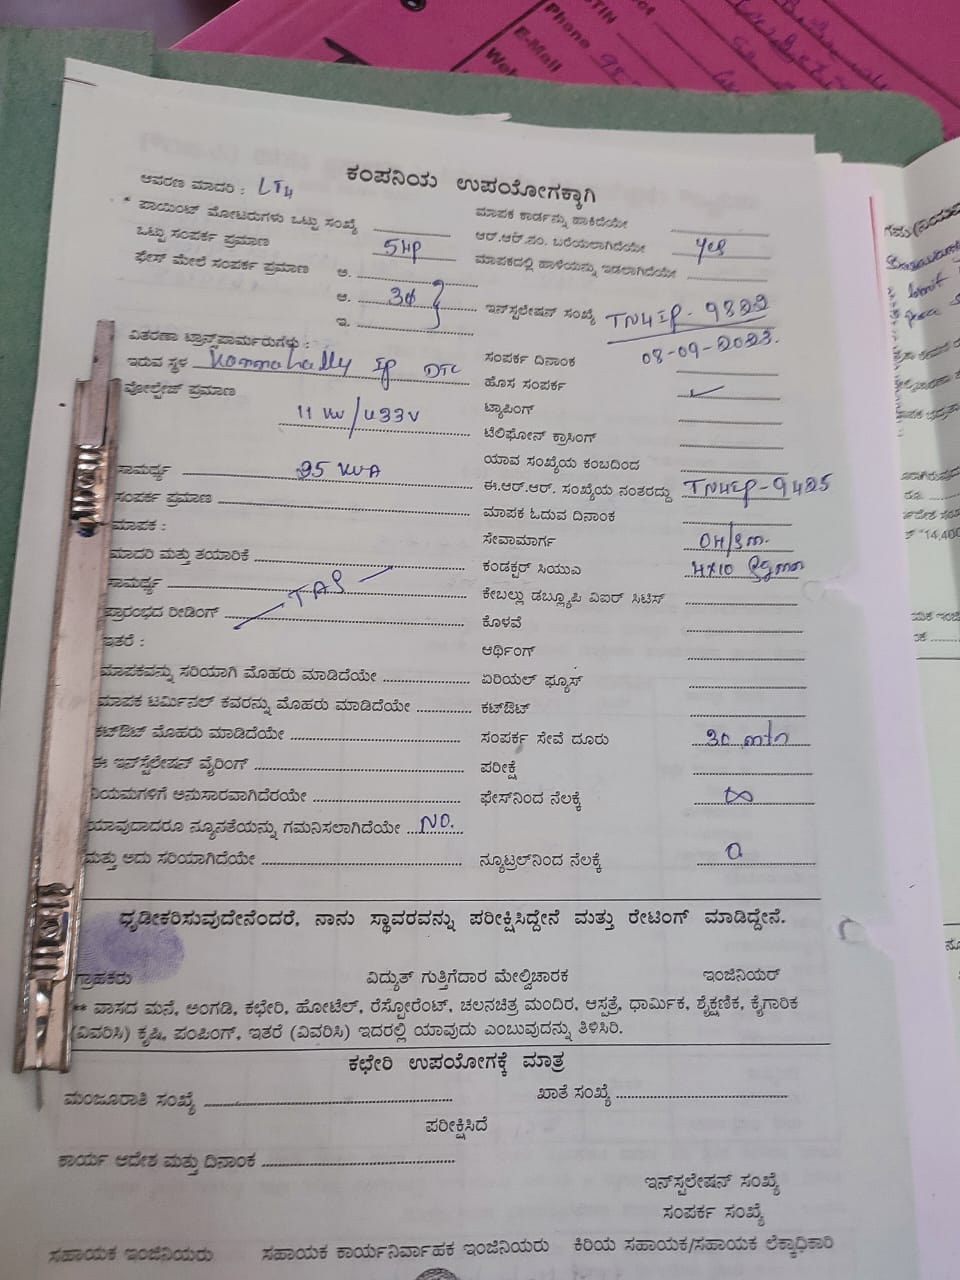 Phone
E-Mail
ಕಂಪನಿಯ ಉಪಯೋಗಕ್ಕಾಗಿ
ಆವರಣ ಮಾದರಿ : LT4
* ಪಾಯಿಂಟ್ ಮೋಟರುಗಳು ಒಟ್ಟು ಸಂಖ್ಯೆ ಮಾಪಕ ಕಾರ್ಡನ್ನು ಹಾಕಿದೆಯೇ
ಒಟ್ಟು ಸಂಪರ್ಕ ಪ್ರಮಾಣ 5HP ಆರ್.ಆರ್.ನಂ. ಬರೆಯಲಾಗಿದೆಯೇ yes
ಫೇಸ್ ಮೇಲೆ ಸಂಪರ್ಕ ಪ್ರಮಾಣ ಅ. ಮಾಪಕದಲ್ಲಿ ಹಾಳೆಯನ್ನು ಇಡಲಾಗಿದೆಯೇ
ಆ. 3ϕ ಇನ್‌ಸ್ಟಲೇಷನ್ ಸಂಖ್ಯೆ
ಇ.
ವಿತರಣಾ ಟ್ರಾನ್ಸ್‌ಪಾರ್ಮರುಗಳು : 08-09-2023.
ಇರುವ ಸ್ಥಳ IP DTC ಸಂಪರ್ಕ ದಿನಾಂಕ
ವೋಲ್ಟೇಜ್ ಪ್ರಮಾಣ ಹೊಸ ಸಂಪರ್ಕ ✓
11 KV/433V ಟ್ಯಾಪಿಂಗ್
ಟೆಲಿಫೋನ್ ಕ್ರಾಸಿಂಗ್
ಸಾಮರ್ಥ್ಯ 25 KVA ಯಾವ ಸಂಖ್ಯೆಯ ಕಂಬದಿಂದ
ಸಂಪರ್ಕ ಪ್ರಮಾಣ ಈ.ಆರ್.ಆರ್. ಸಂಖ್ಯೆಯ ನಂತರದ್ದು
ಮಾಪಕ : ಮಾಪಕ ಓದುವ ದಿನಾಂಕ
ಮಾದರಿ ಮತ್ತು ತಯಾರಿಕೆ ಸೇವಾಮಾರ್ಗ
ಸಾಮರ್ಥ್ಯ ಕಂಡಕ್ಟರ್ ಸಿಯುವಿ 4x10 Sqmm
ಪ್ರಾರಂಭದ ರೀಡಿಂಗ್ ಕೇಬಲ್ಲು ಡಬ್ಲ್ಯೂಪಿ ವಿಐರ್ ಸಿಟಿಸ್
ಇತರೆ : ಕೊಳವೆ
ಆರ್ಥಿಂಗ್
ಮಾಪಕವನ್ನು ಸರಿಯಾಗಿ ಮೊಹರು ಮಾಡಿದೆಯೇ ಏರಿಯಲ್ ಫ್ಯೂಸ್
ಮಾಪಕ ಟರ್ಮಿನಲ್ ಕವರನ್ನು ಮೊಹರು ಮಾಡಿದೆಯೇ ಕಟ್‌ಔಟ್
ಕಟ್‌ಔಟ್ ಮೊಹರು ಮಾಡಿದೆಯೇ ಸಂಪರ್ಕ ಸೇವೆ ದೂರು
ಈ ಇನ್‌ಸ್ಟಲೇಷನ್ ವೈರಿಂಗ್ ಪರೀಕ್ಷೆ
ನಿಯಮಗಳಿಗೆ ಅನುಸಾರವಾಗಿದೆರಯೇ ಫೇಸ್‌ನಿಂದ ನೆಲಕ್ಕೆ ∞
ಯಾವುದಾದರೂ ನ್ಯೂನತೆಯನ್ನು ಗಮನಿಸಲಾಗಿದೆಯೇ NO.
ಮತ್ತು ಅದು ಸರಿಯಾಗಿದೆಯೇ ನ್ಯೂಟ್ರಲ್‌ನಿಂದ ನೆಲಕ್ಕೆ 0
ಧೃಡೀಕರಿಸುವುದೇನೆಂದರೆ, ನಾನು ಸ್ಥಾವರವನ್ನು ಪರೀಕ್ಷಿಸಿದ್ದೇನೆ ಮತ್ತು ರೇಟಿಂಗ್ ಮಾಡಿದ್ದೇನೆ.
ಗ್ರಾಹಕರು ವಿದ್ಯುತ್ ಗುತ್ತಿಗೆದಾರ ಮೇಲ್ವಿಚಾರಕ ಇಂಜಿನಿಯರ್
** ವಾಸದ ಮನೆ, ಅಂಗಡಿ, ಕಛೇರಿ, ಹೋಟೆಲ್, ರೆಸ್ಟೋರೆಂಟ್, ಚಲನಚಿತ್ರ ಮಂದಿರ, ಆಸ್ಪತ್ರೆ, ಧಾರ್ಮಿಕ, ಶೈಕ್ಷಣಿಕ, ಕೈಗಾರಿಕ
(ವಿವರಿಸಿ) ಕೃಷಿ, ಪಂಪಿಂಗ್, ಇತರೆ (ವಿವರಿಸಿ) ಇದರಲ್ಲಿ ಯಾವುದು ಎಂಬುವುದನ್ನು ತಿಳಿಸಿರಿ.
ಕಛೇರಿ ಉಪಯೋಗಕ್ಕೆ ಮಾತ್ರ
ಮಂಜೂರಾತಿ ಸಂಖ್ಯೆ ಖಾತೆ ಸಂಖ್ಯೆ
ಪರೀಕ್ಷಿಸಿದೆ
ಕಾರ್ಯ ಆದೇಶ ಮತ್ತು ದಿನಾಂಕ
ಇನ್‌ಸ್ಟಲೇಷನ್ ಸಂಖ್ಯೆ
ಸಂಪರ್ಕ ಸಂಖ್ಯೆ
ಸಹಾಯಕ ಇಂಜಿನಿಯರು ಸಹಾಯಕ ಕಾರ್ಯನಿರ್ವಾಹಕ ಇಂಜಿನಿಯರು ಕಿರಿಯ ಸಹಾಯಕ/ಸಹಾಯಕ ಲೆಕ್ಕಾಧಿಕಾರಿ